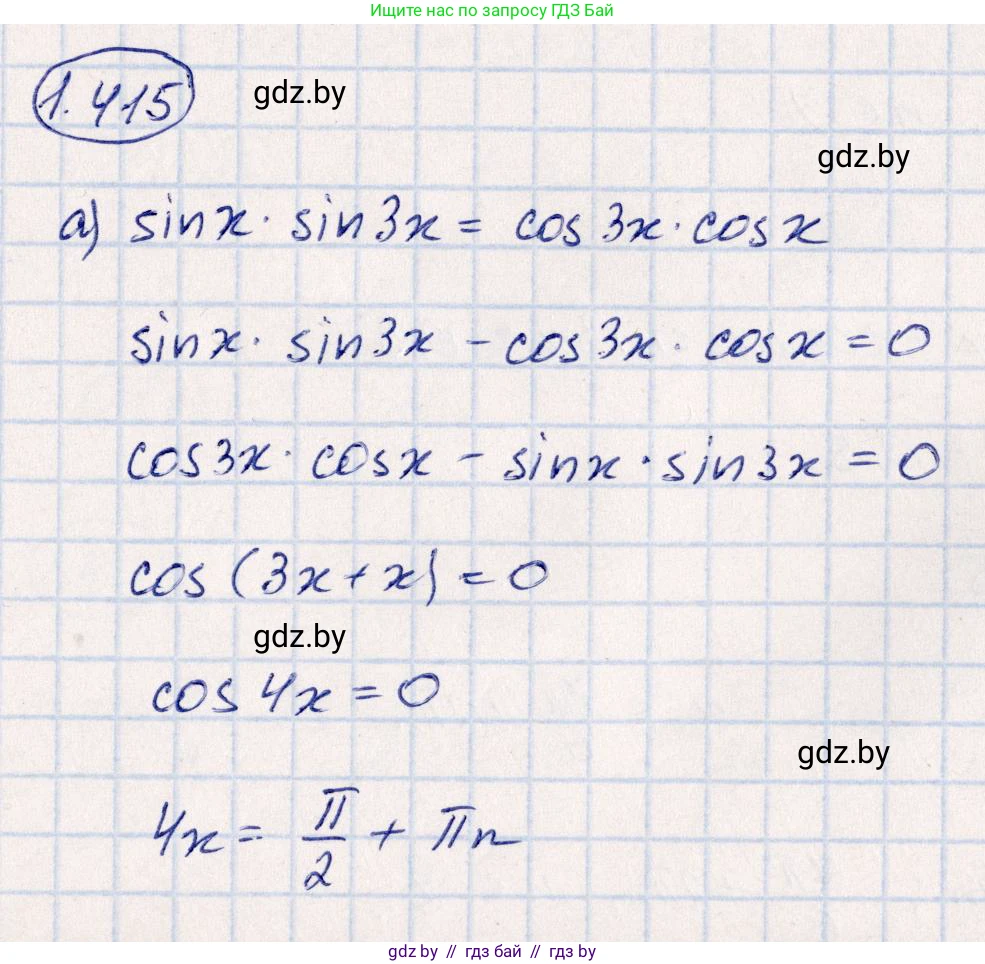 Ищите нас по запросу ГДЗ Бай
1.415
gdz.by
gdz.by
а) sin x · sin 3x = cos 3x · cos x
sin x · sin 3x - cos 3x · cos x = 0
cos 3x · cos x - sin x · sin 3x = 0
cos (3x + x) = 0
gdz.by
cos 4x = 0
gdz.by
4x = π/2 + πn
gdz.by // гдз бай // гдз by